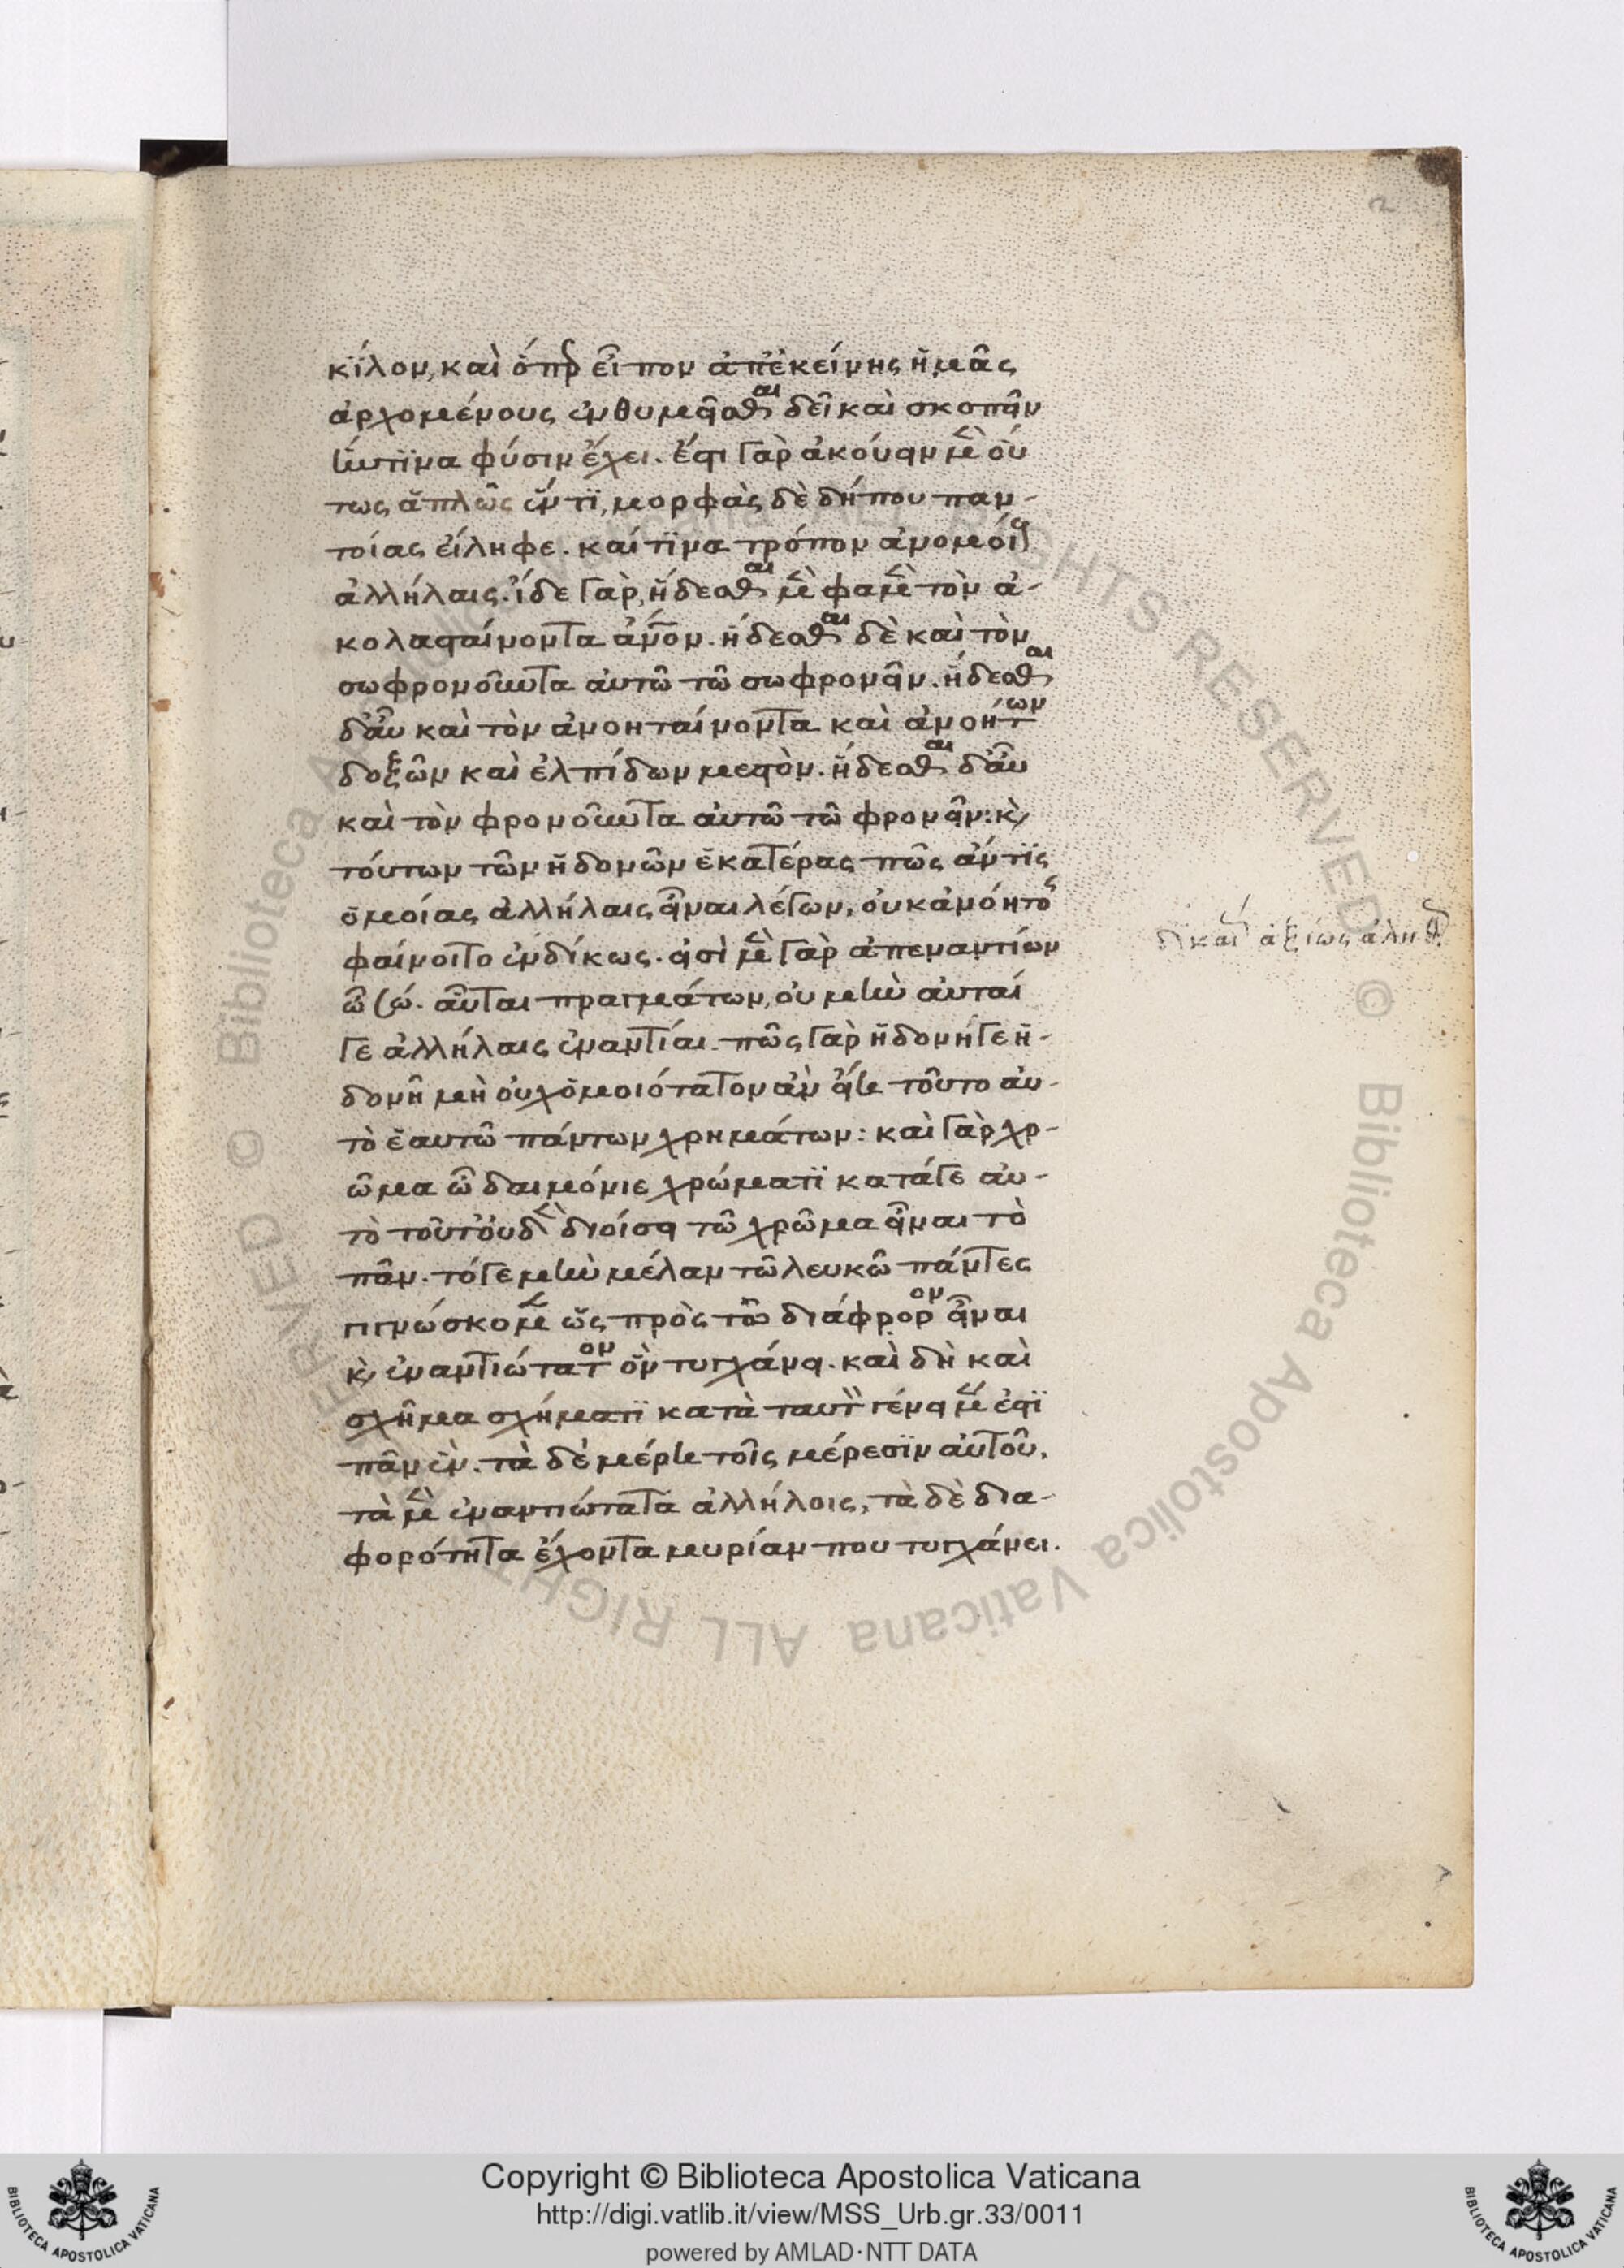 κϊλον, καὶ ὅπερ εἶπον ἀπ' ἐκείνης ἡμᾶς
ἀρχομένους ἐνθυμεῖσθαι δεῖ καὶ σκοπεῖν
ἥντϊνα φύσιν ἔχει. ἔστι γὰρ ἀκούειν μὲν οὕ
τως ἁπλῶς ἕν τϊ, μορφὰς δὲ δήπου παν-
τοίας εἴληφε. καί τϊνα τρόπον ἀνομοίους
ἀλλήλαις. ἴδε γὰρ, ἥδεσθαι μὲν φαμὲν τὸν ἀ-
κολασταίνοντα ἄνον. ἥδεσθαι δὲ καὶ τὸν
σωφρονοῦντα αὐτῶ τῶ σωφρονεῖν. ἥδεσθαι
δ' αὖ καὶ τὸν ἀνοηταίνοντα καὶ ἀνοήτων
δοξῶν καὶ ἐλπίδων μεστὸν. ἥδεσθαι δ' αὖ
καὶ τὸν φρονοῦντα αὐτῶ τῶ φρονεῖν: κὶ
τούτων τῶν ἡδονῶν ἑκατέρας πῶς ἄν τϊς
ὁμοίας ἀλλήλαις εἶναι λέγων, οὐκ ἀνόητος
φαίνοιτο ἐνδίκως. εἰσὶ μὲν γὰρ ἀπ' ἐναντίων
δικαί ἀξίως ἀληθ
ὦ σώ. αὗται πραγμάτων, οὐ μὴν αὐταί
γε ἀλλήλαις ἐναντίαι. πῶς γὰρ ἡδονή γε ἡ-
δονῆ μὴ οὐχ ὁμοιότατον ἂν εἴη τοῦτο αὐ-
τὸ ἑαυτῶ πάντων χρημάτων: καὶ γὰρ χρ-
ῶμα ὦ δαιμόνιε χρώματϊ κατά γε αὐ-
τὸ τοῦτ' οὐδὲν διοίσει τῶ χρῶμα εἶναι τὸ
πᾶν. τό γε μὴν μέλαν τῶ λευκῶ πάντες
γιγνώσκομεν ὡς πρὸς τῶ διάφορον εἶναι
κὶ ἐναντιώτατον ὂν τυγχάνει. καὶ δὴ καὶ
σχῆμα σχήματϊ κατὰ ταυτὸν γένει μέν ἐστϊ
πᾶν ἓν. τὰ δὲ μέρη τοῖς μέρεσϊν αὐτοῦ,
τὰ μὲν ἐναντιώτατα ἀλλήλοις, τὰ δὲ δια-
φορότητα ἔχοντα μυρίαν που τυγχάνει.
Copyright © Biblioteca Apostolica Vaticana
http://digi.vatlib.it/view/MSS_Urb.gr.33/0011
powered by AMLAD·NTT DATA